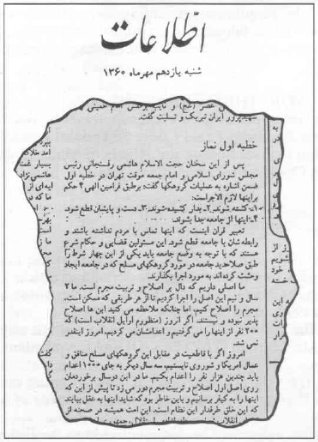 اطلاعات
شنبه یازدهم مهرماه ۱۳۶۰
شهیدپرور ایران تبریک و تسلیت گفت.
خطبه اول نماز
پس از این سخنان حجت الاسلام هاشمی رفسنجانی رئیس
مجلس شورای اسلامی و امام جمعه موقت تهران در خطبه اول
ضمن اشاره به عملیات گروهکها گفت: برطبق فرامین الهی ۴ حکم
براینها لازم الاجراست:
۱ـ کشته شوند، ۲ـ بدار کشیده شوند، ۳ـ دست و پایشان قطع شود،
۴ـ اینها از جامعه جدا بشوند.
تعبیر قرآن اینست که اینها تماس با مردم نداشته باشند و
رابطه شان با جامعه قطع شود. این مسئولین قضایی و حکام شرع
هستند که با توجه به وضع جامعه باید یکی از این چهار شرط را
طبق صلاحدید جامعه در مورد گروهکهای مسلح که در جامعه ایجاد
وحشت کرده‌اند به مورد اجرا بگذارند.
ما اصلی داریم که دال بر اصلاح و تربیت مجرم است. ما ۲
سال و نیم این اصل را اجرا کردیم تا از هر طریقی که ممکن است،
مجرم را اصلاح کنیم. اما چنانکه ملاحظه می کنید این ها اصلاح
پذیر نبوده و نیستند. اگر آنروز (منظورم اوایل انقلاب است) که
۲۰۰ نفر از اینها را می گرفتیم و اعدامشان می کردیم، امروز اینقدر
نمی شد.
امروز اگر با قاطعیت در مقابل این گروهکهای مسلح منافق و
عمال امریکا و شوروی نایستیم، سه سال دیگر به جای ۱۰۰۰ اعدام
باید چندین هزار نفر را اعدام بکنیم. ما در این دوسال برخوردمان
روی اصل اول اصلاح و تربیت مجرم دور می زد تا پیش از این که
اینها را به کیفر برسانیم و باین خاطر بود که شاید اینها به عقل بیایند
که این خلق طرفدار این نظام است. این امت همیشه در صحنه از